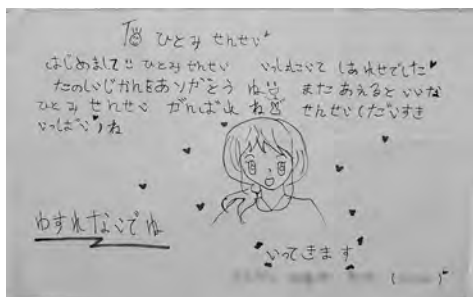 To ひとみ せんせい
はじめまして ひとみ せんせい いっしょにいて しあわせでした
たのしいじかんをありがとう ね またあえると いいな
ひとみ せんせい がんばれ ね せんせいくだいすき
いっぱい ね
わすれないでね
いってきます